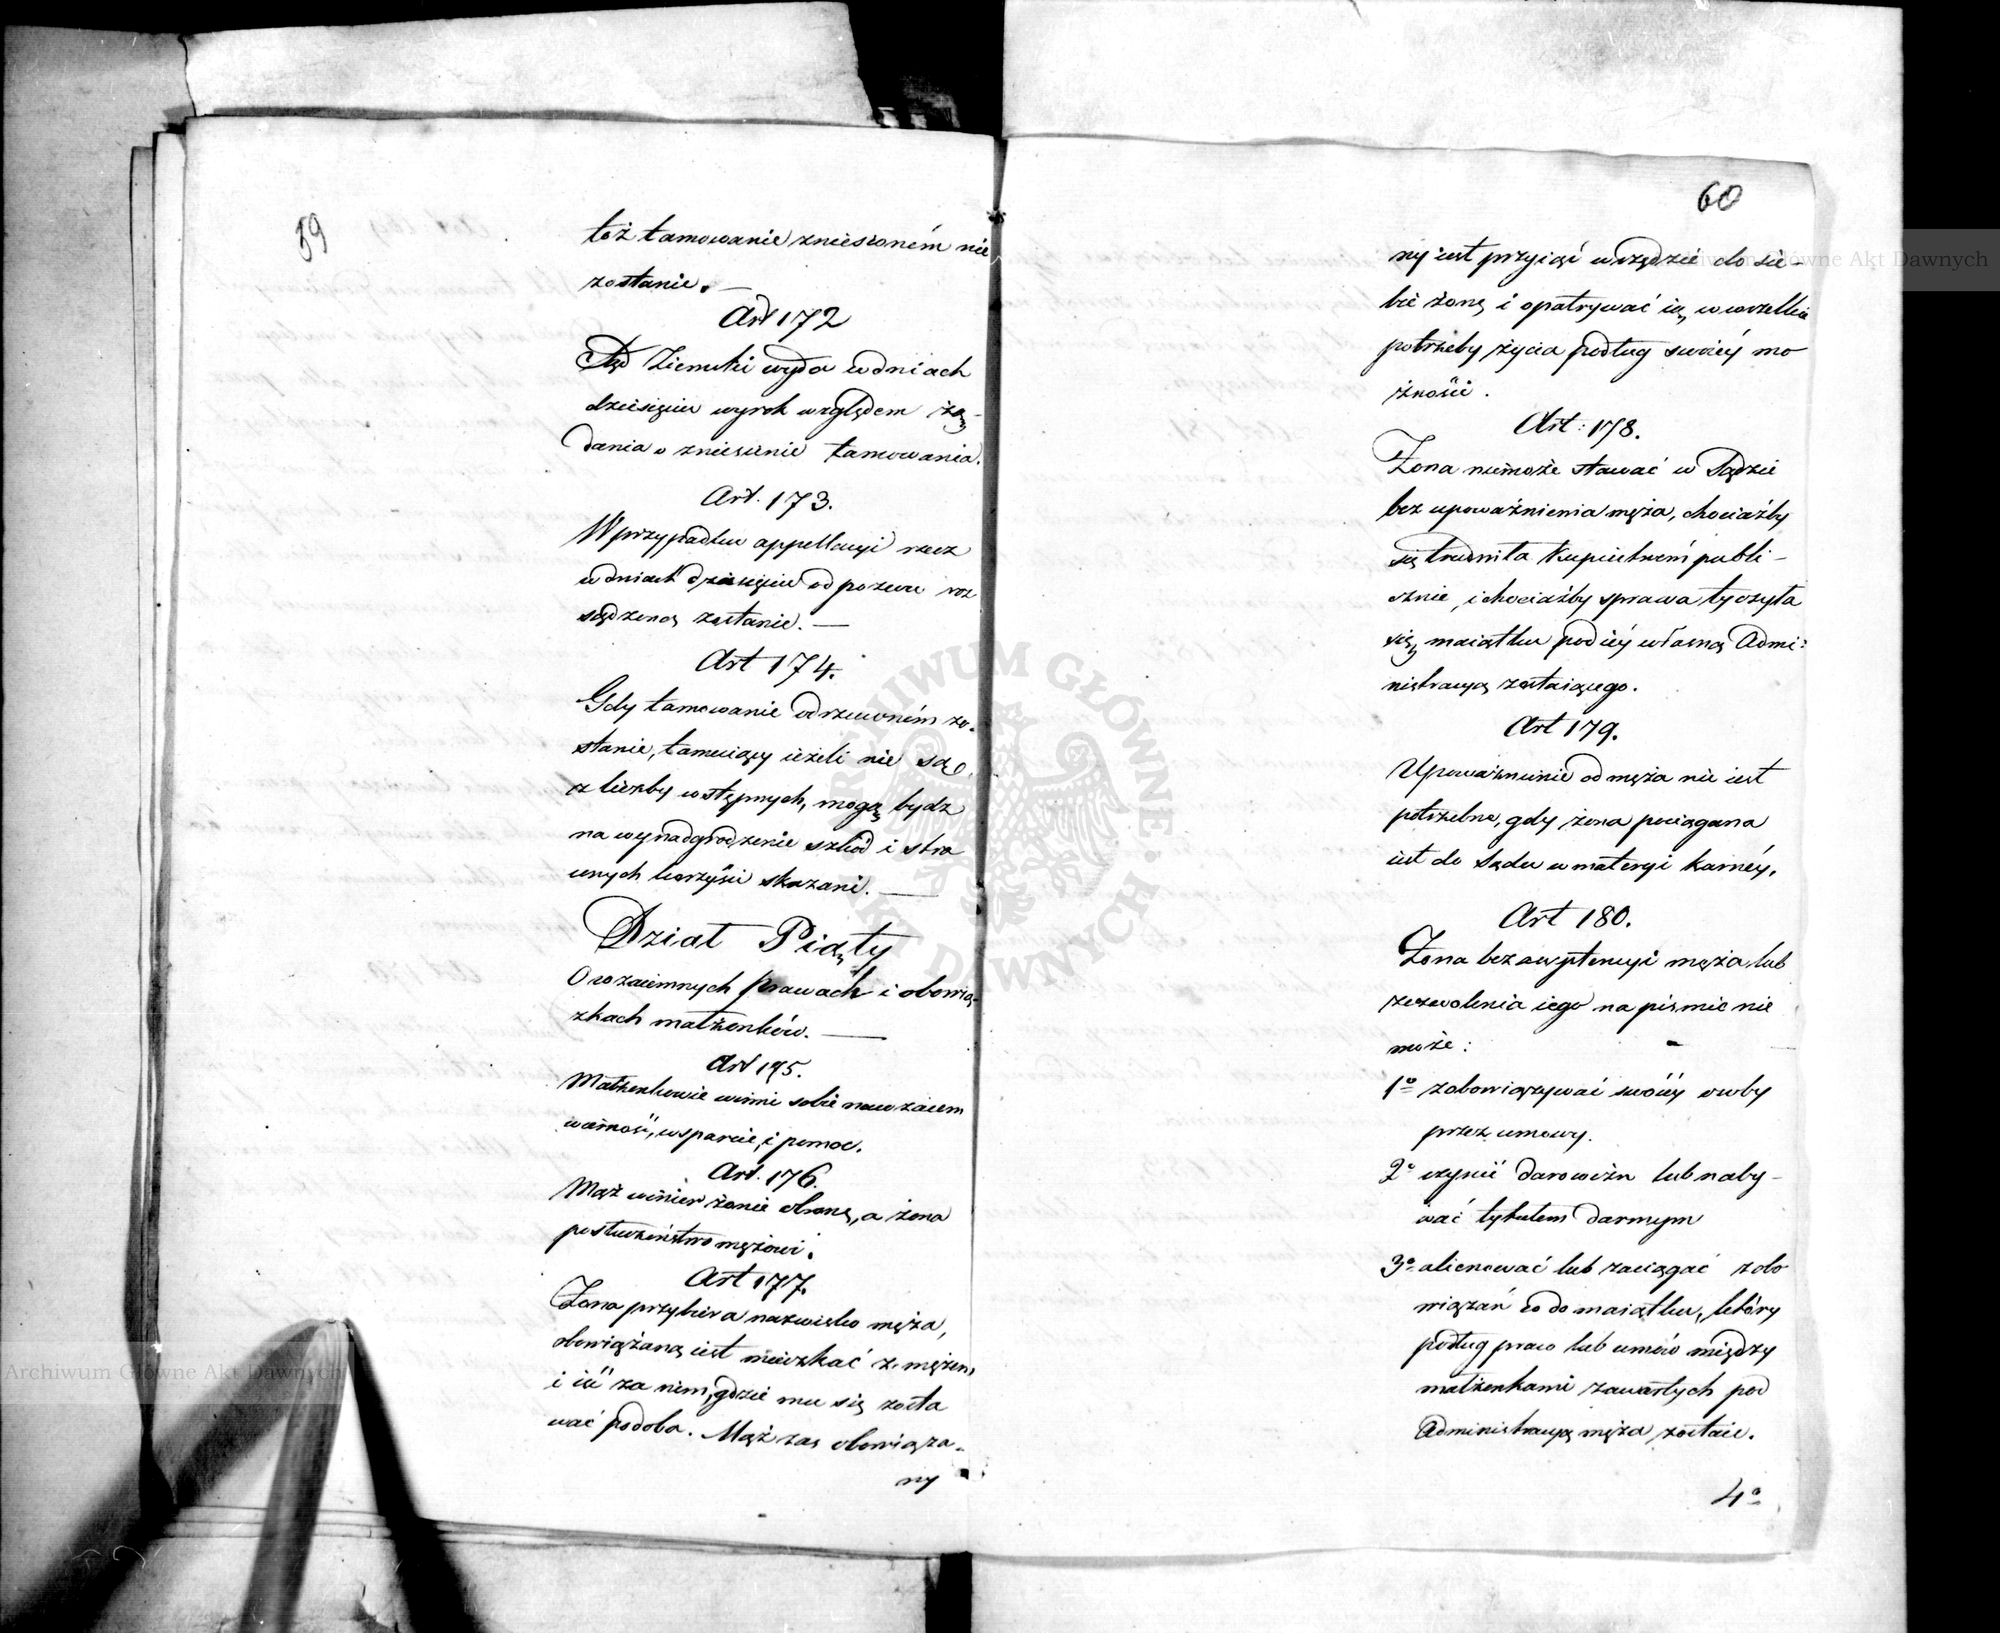 59
też tamowanie zniesioném nie
zostanie. —
Art 172
Sąd Ziemski wyda w dniach
dziesięciu wyrok względem żą-
dania o zniesienie tamowania.
Art. 173.
W przypadku appellacyi rzecz
w dniach dziesięciu od pozwu roz
sądzoną zostanie. —
Art 174.
Gdy tamowanie odrzuconém zo-
stanie, tamuiący ieżeli nie są
z liczby wstępnych, mogą bydz
na wynadgrodzenie szkód i stra
conych korzyści skazani. —
Dział Piąty
O wzaiemnych prawach i obowią-
zkach małżonków. —
Art 175.
Małżonkowie winni sobie nawzaiem
wiérność, wsparcie, i pomoc.
Art. 176.
Mąż winien żonie obronę, a żona
posłuszeństwo mężowi.
Art 177.
Żona przybiera nazwisko męża,
obowiązaną iest mieszkać z mężem
i iść za nim, gdzie mu się zosta
wać podoba. Mąż zas obowiąza-
ny
60
ny iest przyiąć wszędzie do sie-
bie żonę i opatrywać ią w wszelkie
potrzeby życia podług swoiéy mo
żności.
Art: 178.
Żona niemoże stawać w Sądzie
bez upoważnienia męża, chociażby
się trudniła Kupiectwem publi-
cznie, i chociażby sprawa tyczyła
się maiątku pod iéy własną Admi:
nistracyą zostaiącego.
Art 179.
Upoważnienie od męża nie iest
potrzebne, gdy żona pociągana
iest do Sądu w materyi karnéy.
Art 180.
Żona bez assystencyi męża lub
zezwolenia iego na pismie nie
może:
1o zobowiązywać swoiéy osoby
przez umowy.
2o czynić darowizn lub naby-
wać tytułem darmym
3o alienować lub zaciągać zobo
wiązań co do maiątku, który
podług praw lub umów między
małżonkami zawartych pod
Administracyą męża zostaie.
4o
Archiwum Główne Akt Dawnych
Archiwum Główne Akt Dawnych
ARCHIWUM GŁÓWNE AKT DAWNYCH